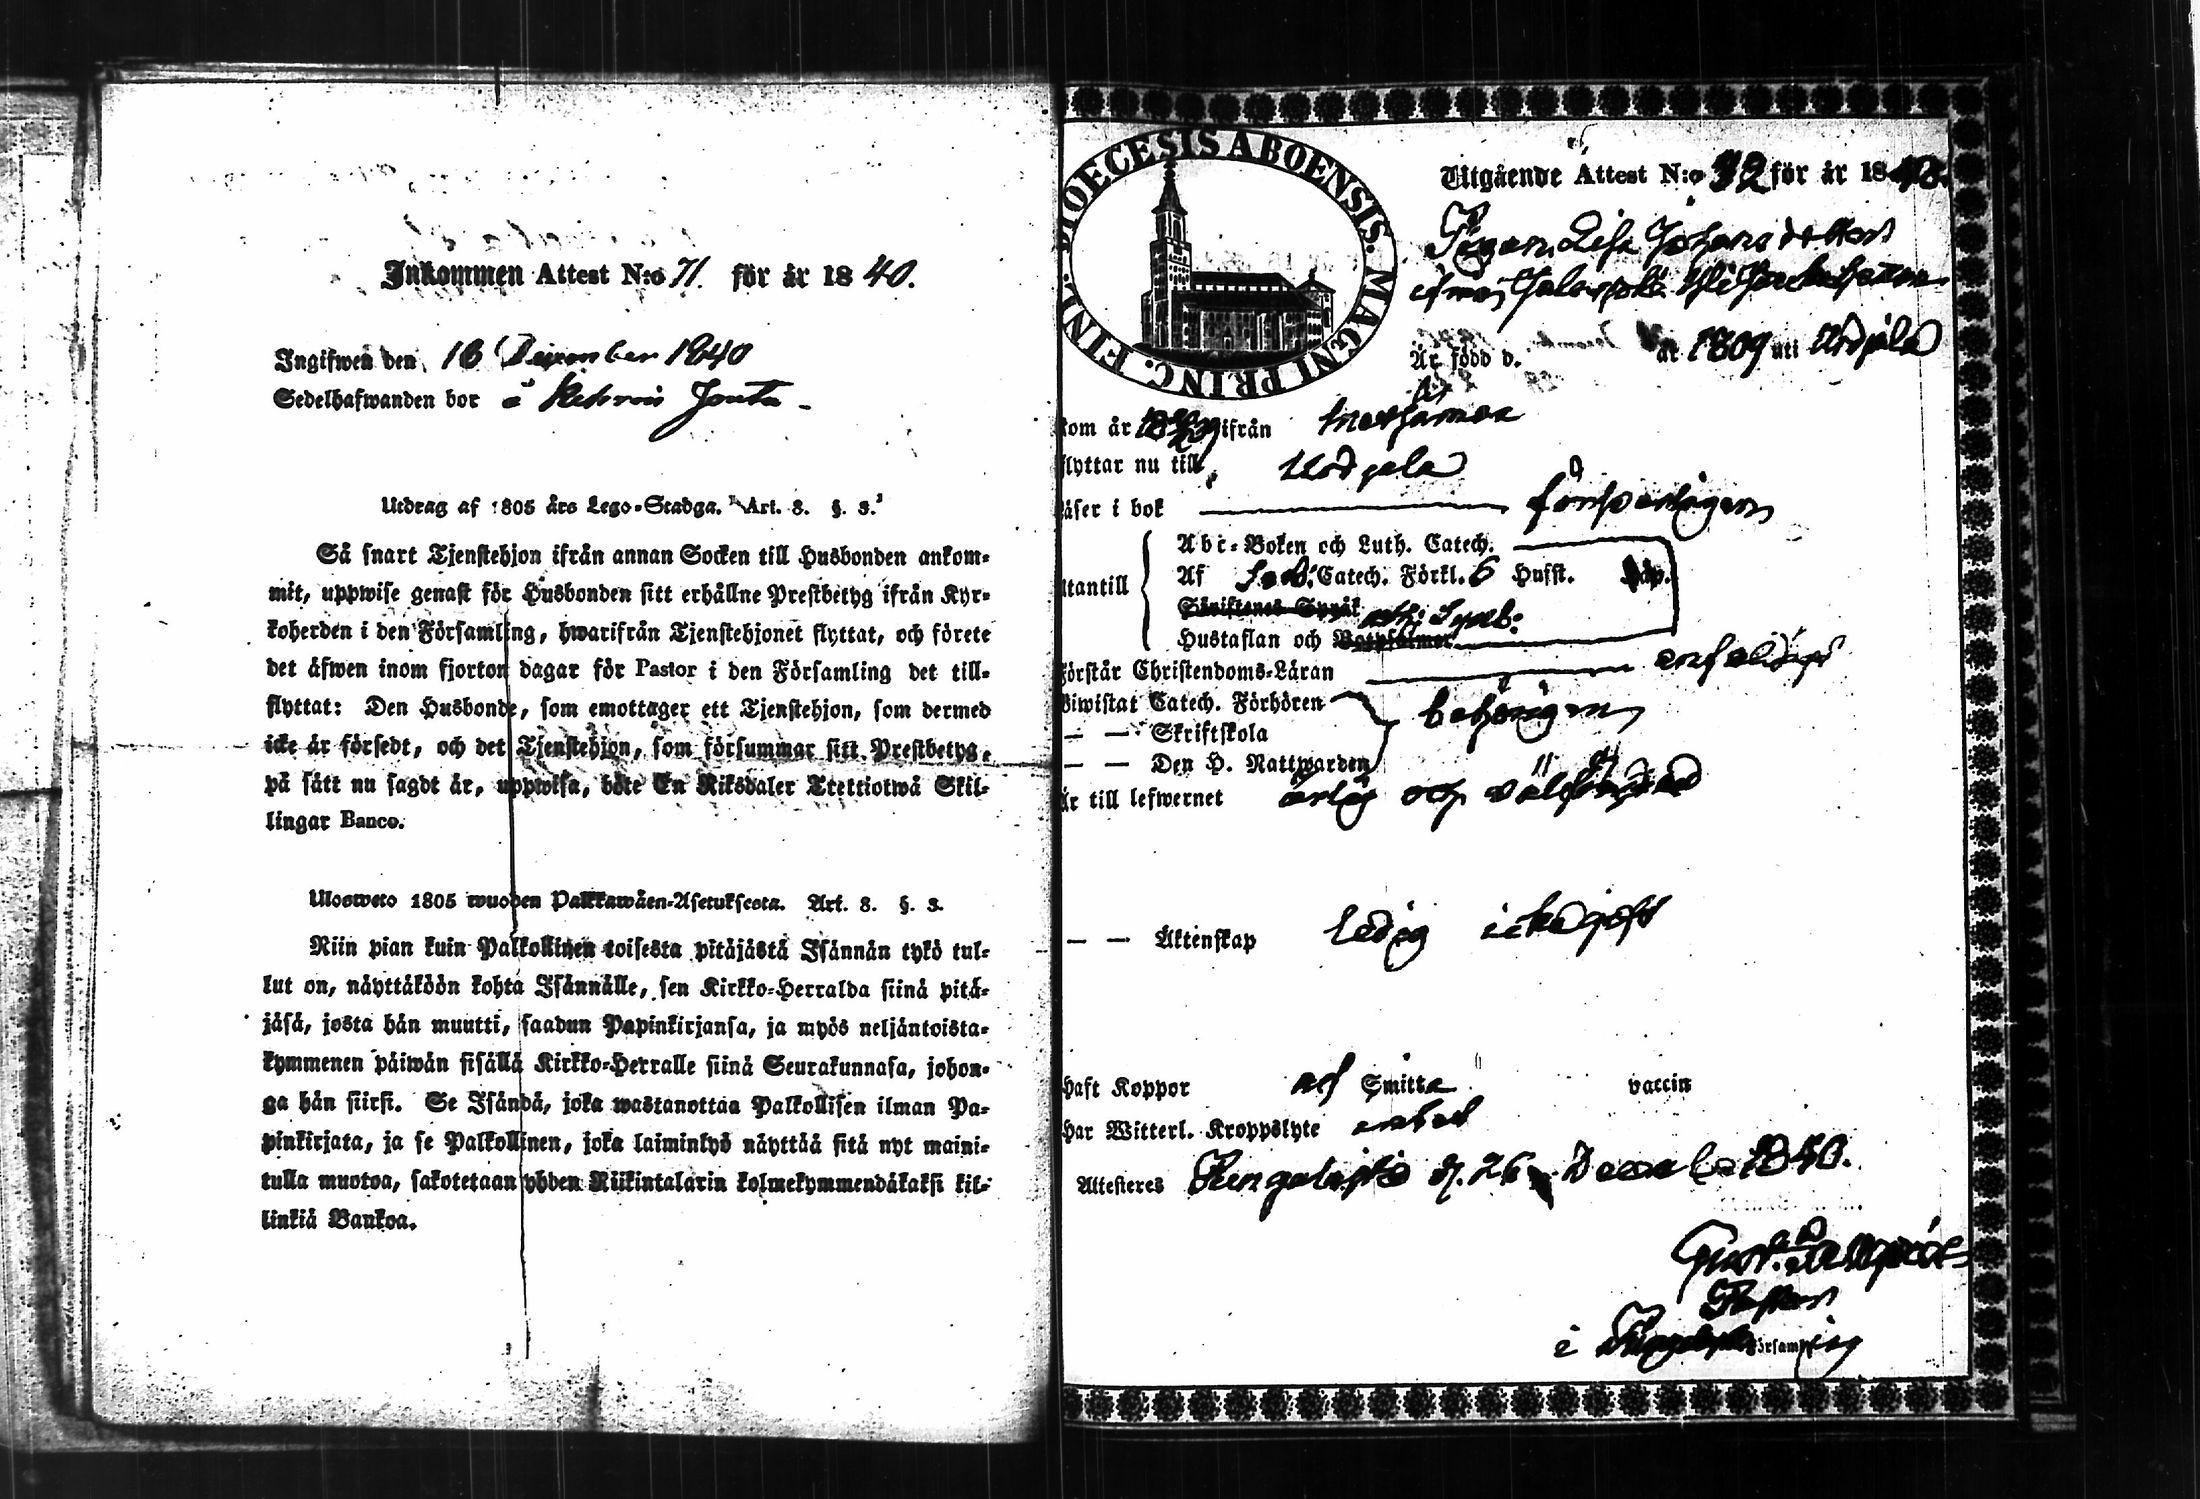 Inkommen Attest N:o 71. för år 1840.
Ingifwen den 18 December 1840
Sedelhafwanden bor å
Utdrag af 1805 års Lego-Stadga. Art. 8. §. 3.
Så snart Tjenstehjon ifrån annan Socken till Husbonden ankom-
mit, uppwise genast för Husbonden sitt erhållne Prestbetyg ifrån Kyr-
koherden i den Församling, hwarifrån Tjenstehjonet flyttat, och förete
det äfwen inom fjorton dagar för Pastor i den Församling det till-
flyttat: Den Husbonde, som emottager ett Tjenstehjon, som dermed
icke är försedt, och det Tjenstehjon, som försummar sitt Prestbetyg,
på sätt nu sagdt är, uppwisa, böte En Riksdaler Trettiotwå Skil-
lingar Banco.
Ulosweto 1805 wuoden Palkkawäen-Asetuksesta. Art. 8. §. 3.
Niin pian kuin Palkollinen toisesta pitäjästä Isännän tykö tul-
lut on, näyttäköön kohta Isännälle, sen Kirkko-Herralda siinä pitä-
jäsä, josta hän muutti, saadun Papinkirjansa, ja myös neljäntoista-
kymmenen päiwän sisällä Kirkko-Herralle siinä Seurakunnasa, johon-
ga hän siirsi. Se Isändä, joka wastanottaa Palkollisen ilman Pa-
pinkirjata, ja se Palkollinen, joka laiminlyö näyttää sitä nyt maini-
tulla muotoa, sakotetaan yhden Riikintalarin kolmekymmendäkaksi kil-
linkiä Bankoa.
DIOECESIS ABOENSIS. MAGNI PRINC. FINL.
Utgående Attest N:o 32 för år 1840.
Pigan Lisa Johansdotter
ifrån
Är född d. år 1809 uti Urdjala
kom år ifrån
flyttar nu till Urdjala
läser i bok försvarligen
Abc-Boken och Luth. Catech.
Utantill Af Catech. Förkl. 6 Husst. Hûp.
Skriftenes Språk Symb:
Hustaflan och Botpsalmer
Förstår Christendoms-Läran enfaldigt
Biwistat Catech. Förhören behörigen
— — Skriftskola
— — Den H. Nattwarden
Är till lefwernet ärlig och välfrejdad
— — Äktenskap ledig icke gift
Haft Koppor af Smitta vaccin
Har Witterl. Kroppslyte intet
Attesteres Kungalaks d. 26 December 1840.
Pastor
i Församling